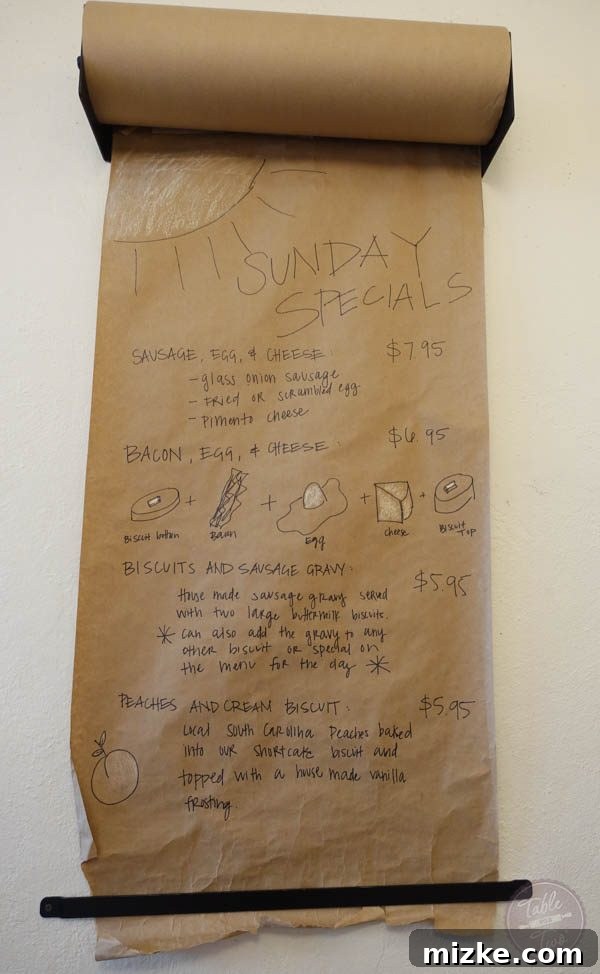 SUNDAY
SPECIALS
SAUSAGE, EGG, & CHEESE: $7.95
- glass onion sausage
- FRIED OR scrambled egg
- Pimonto cheese
BACON, EGG, & CHEESE: $6.95
+ + + +
Biscuit bottom Bacon Egg cheese Biscuit TOP
BISCUITS AND SAUSAGE GRAVY: $5.95
House made sausage gravy served
with two large buttermilk biscuits.
* can also add the gravy to any
other biscuit or special on
the menu for the day *
PEACHES AND CREAM BISCUIT: $5.95
Local South Carolina Peaches baked
into our shortcake biscuit and
topped with a house made vanilla
frosting.
Table
mizke.com